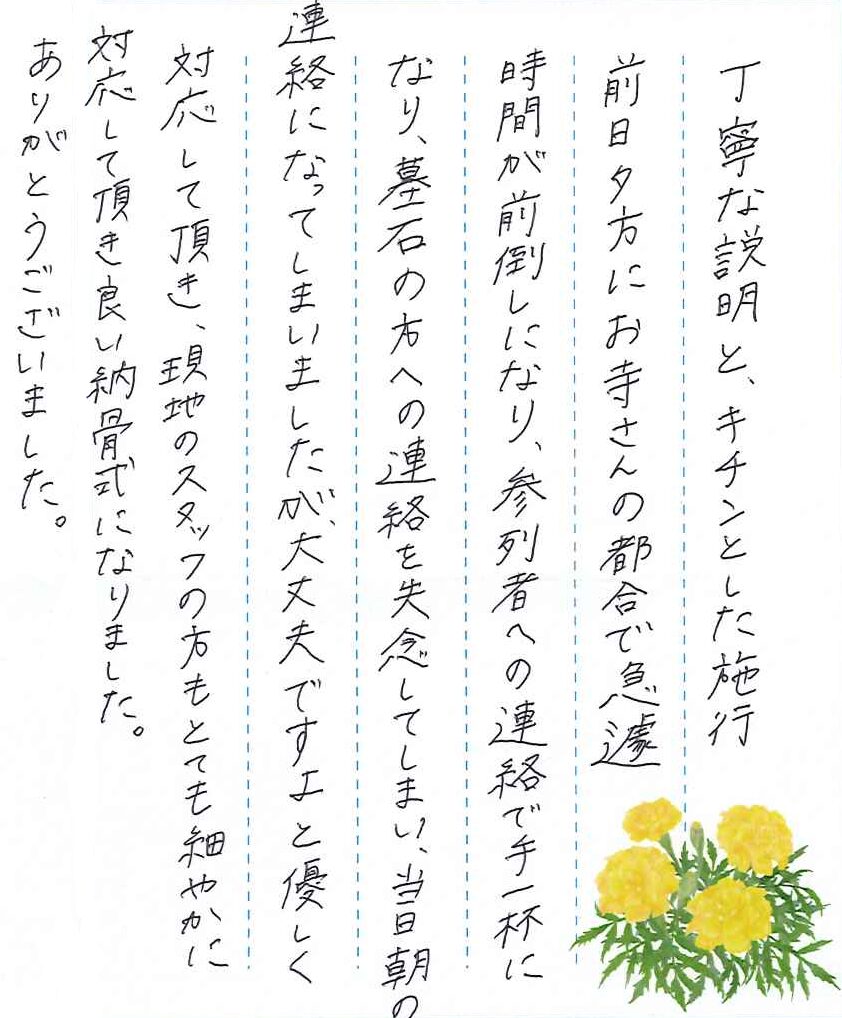 丁寧な説明と、キチンとした施行
前日夕方にお寺さんの都合で急遽
時間が前倒しになり、参列者への連絡で手一杯に
なり、墓石の方への連絡を失念してしまい、当日朝の
連絡になってしまいましたが、大丈夫ですよと優しく
対応して頂き、現地のスタッフの方もとても細やかに
対応して頂き良い納骨式になりました。
ありがとうございました。